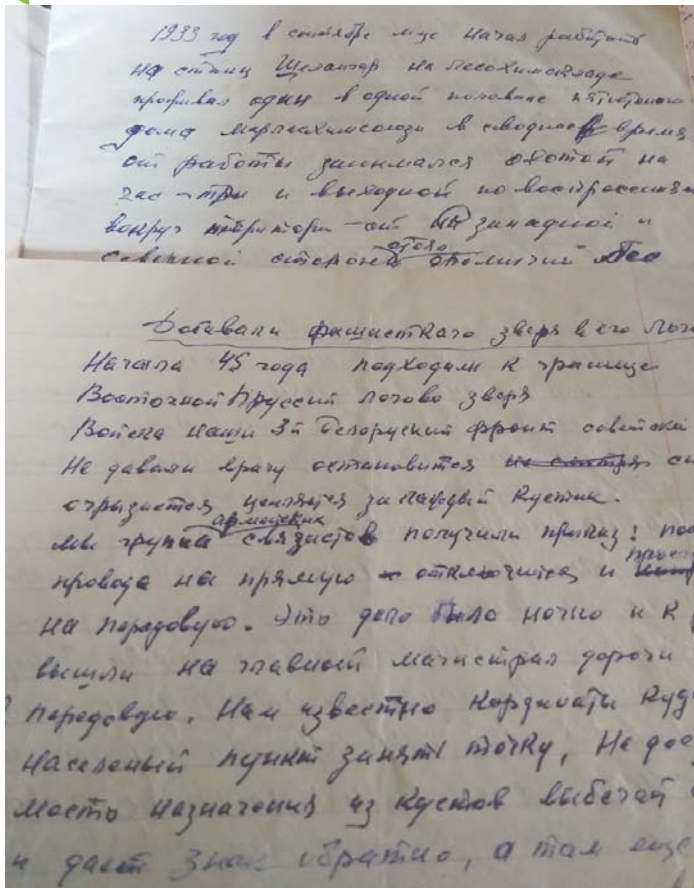 1933 год в сентябре м-це начал работать
на станц Шелангер на лесохимскладе
проживал один в одной половине пятистенного
дома Марлесхимсоюза в свободное время
от работы занимался охотой на
час-три и выходной по воскресениям
вокруг територии от западной и
северной стороны
Добивали фашисткаго зверя в его лого
Начала 45 года подходили к границе
Восточной Пруссий логово зверя
Войска наши 3й Белоруский фронт советской
Не давали врагу остановится
огрызается цепляется за каждый кустик.
мы группа армейских связистов получили приказ:
провода на прямую отключится и
на передовую. Это дело было ночью и к
вышли на главной магистрал дороги
передовую. Нам известно кордлнаты куд
населеный пункт занять точку, Не дое
место назначения из кустов выбегай
и дает знак обратно, а там еще